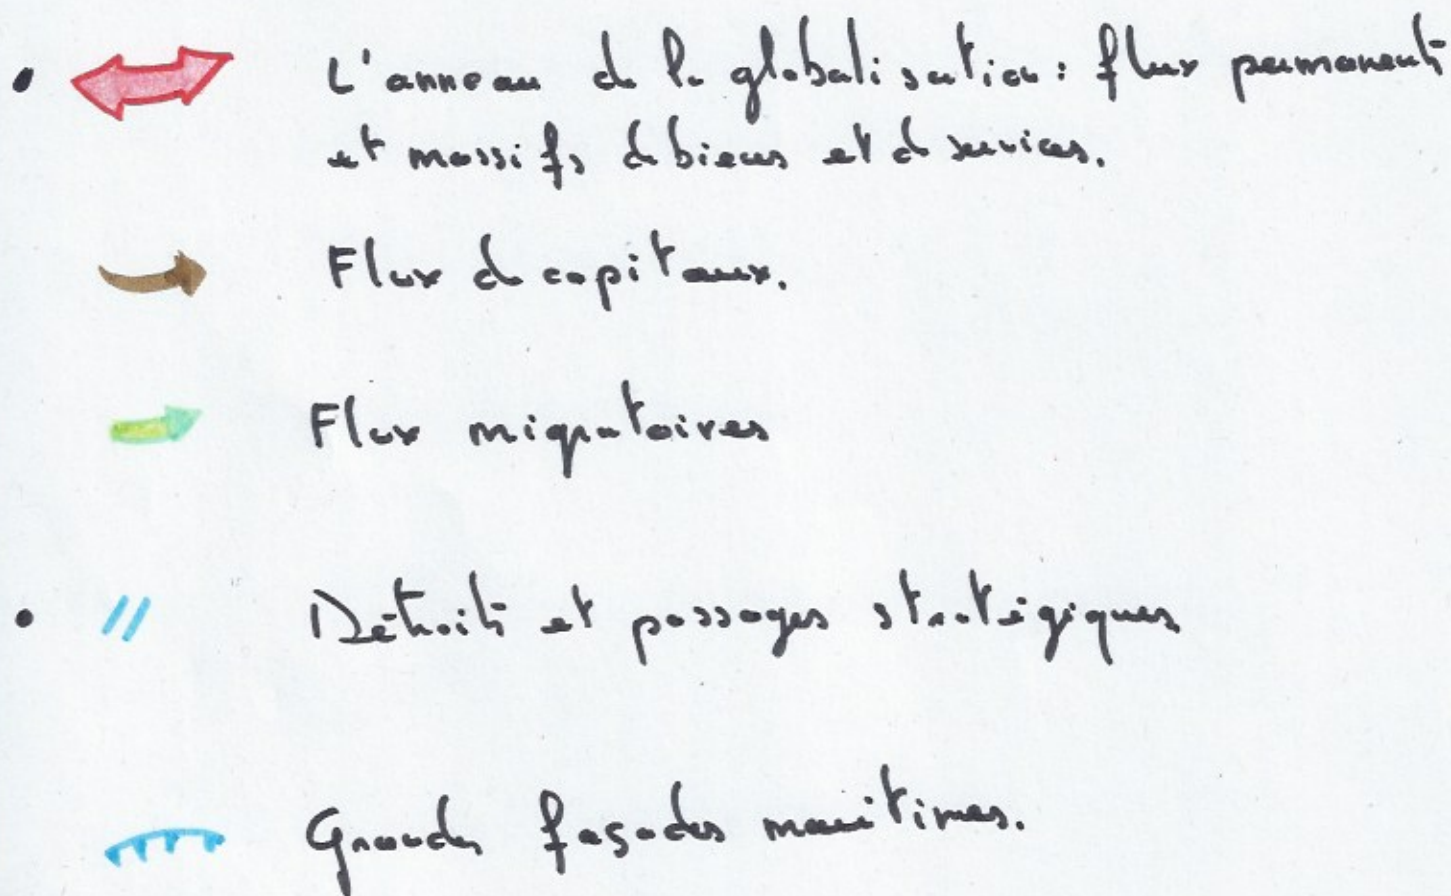 L'anneau de la globalisation : flux permanents
et massifs de biens et de services.
Flux de capitaux.
Flux migratoires
Détroits et passages stratégiques
Grandes façades maritimes.